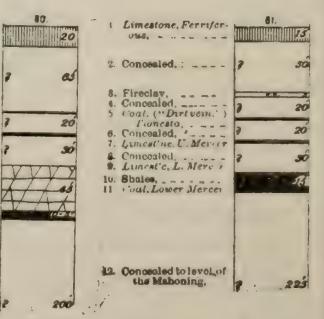 80.
20
? 65
? 20
? 30
45
? 200
1 Limestone, Ferrifer-
ous,
2. Concealed,
3. Fireclay,
4. Concealed,
5 Coal, ("Dirt vein,")
Tionesta,
6. Concealed,
7. Limest'ne, U. Mercer
8. Concealed,
9. Limest'e, L. Merc
10. Shales,
11 Coal, Lower Mercer
12. Concealed to level of
the Mahoning,
81.
15
? 30
? 20
? 20
? 30
? 225